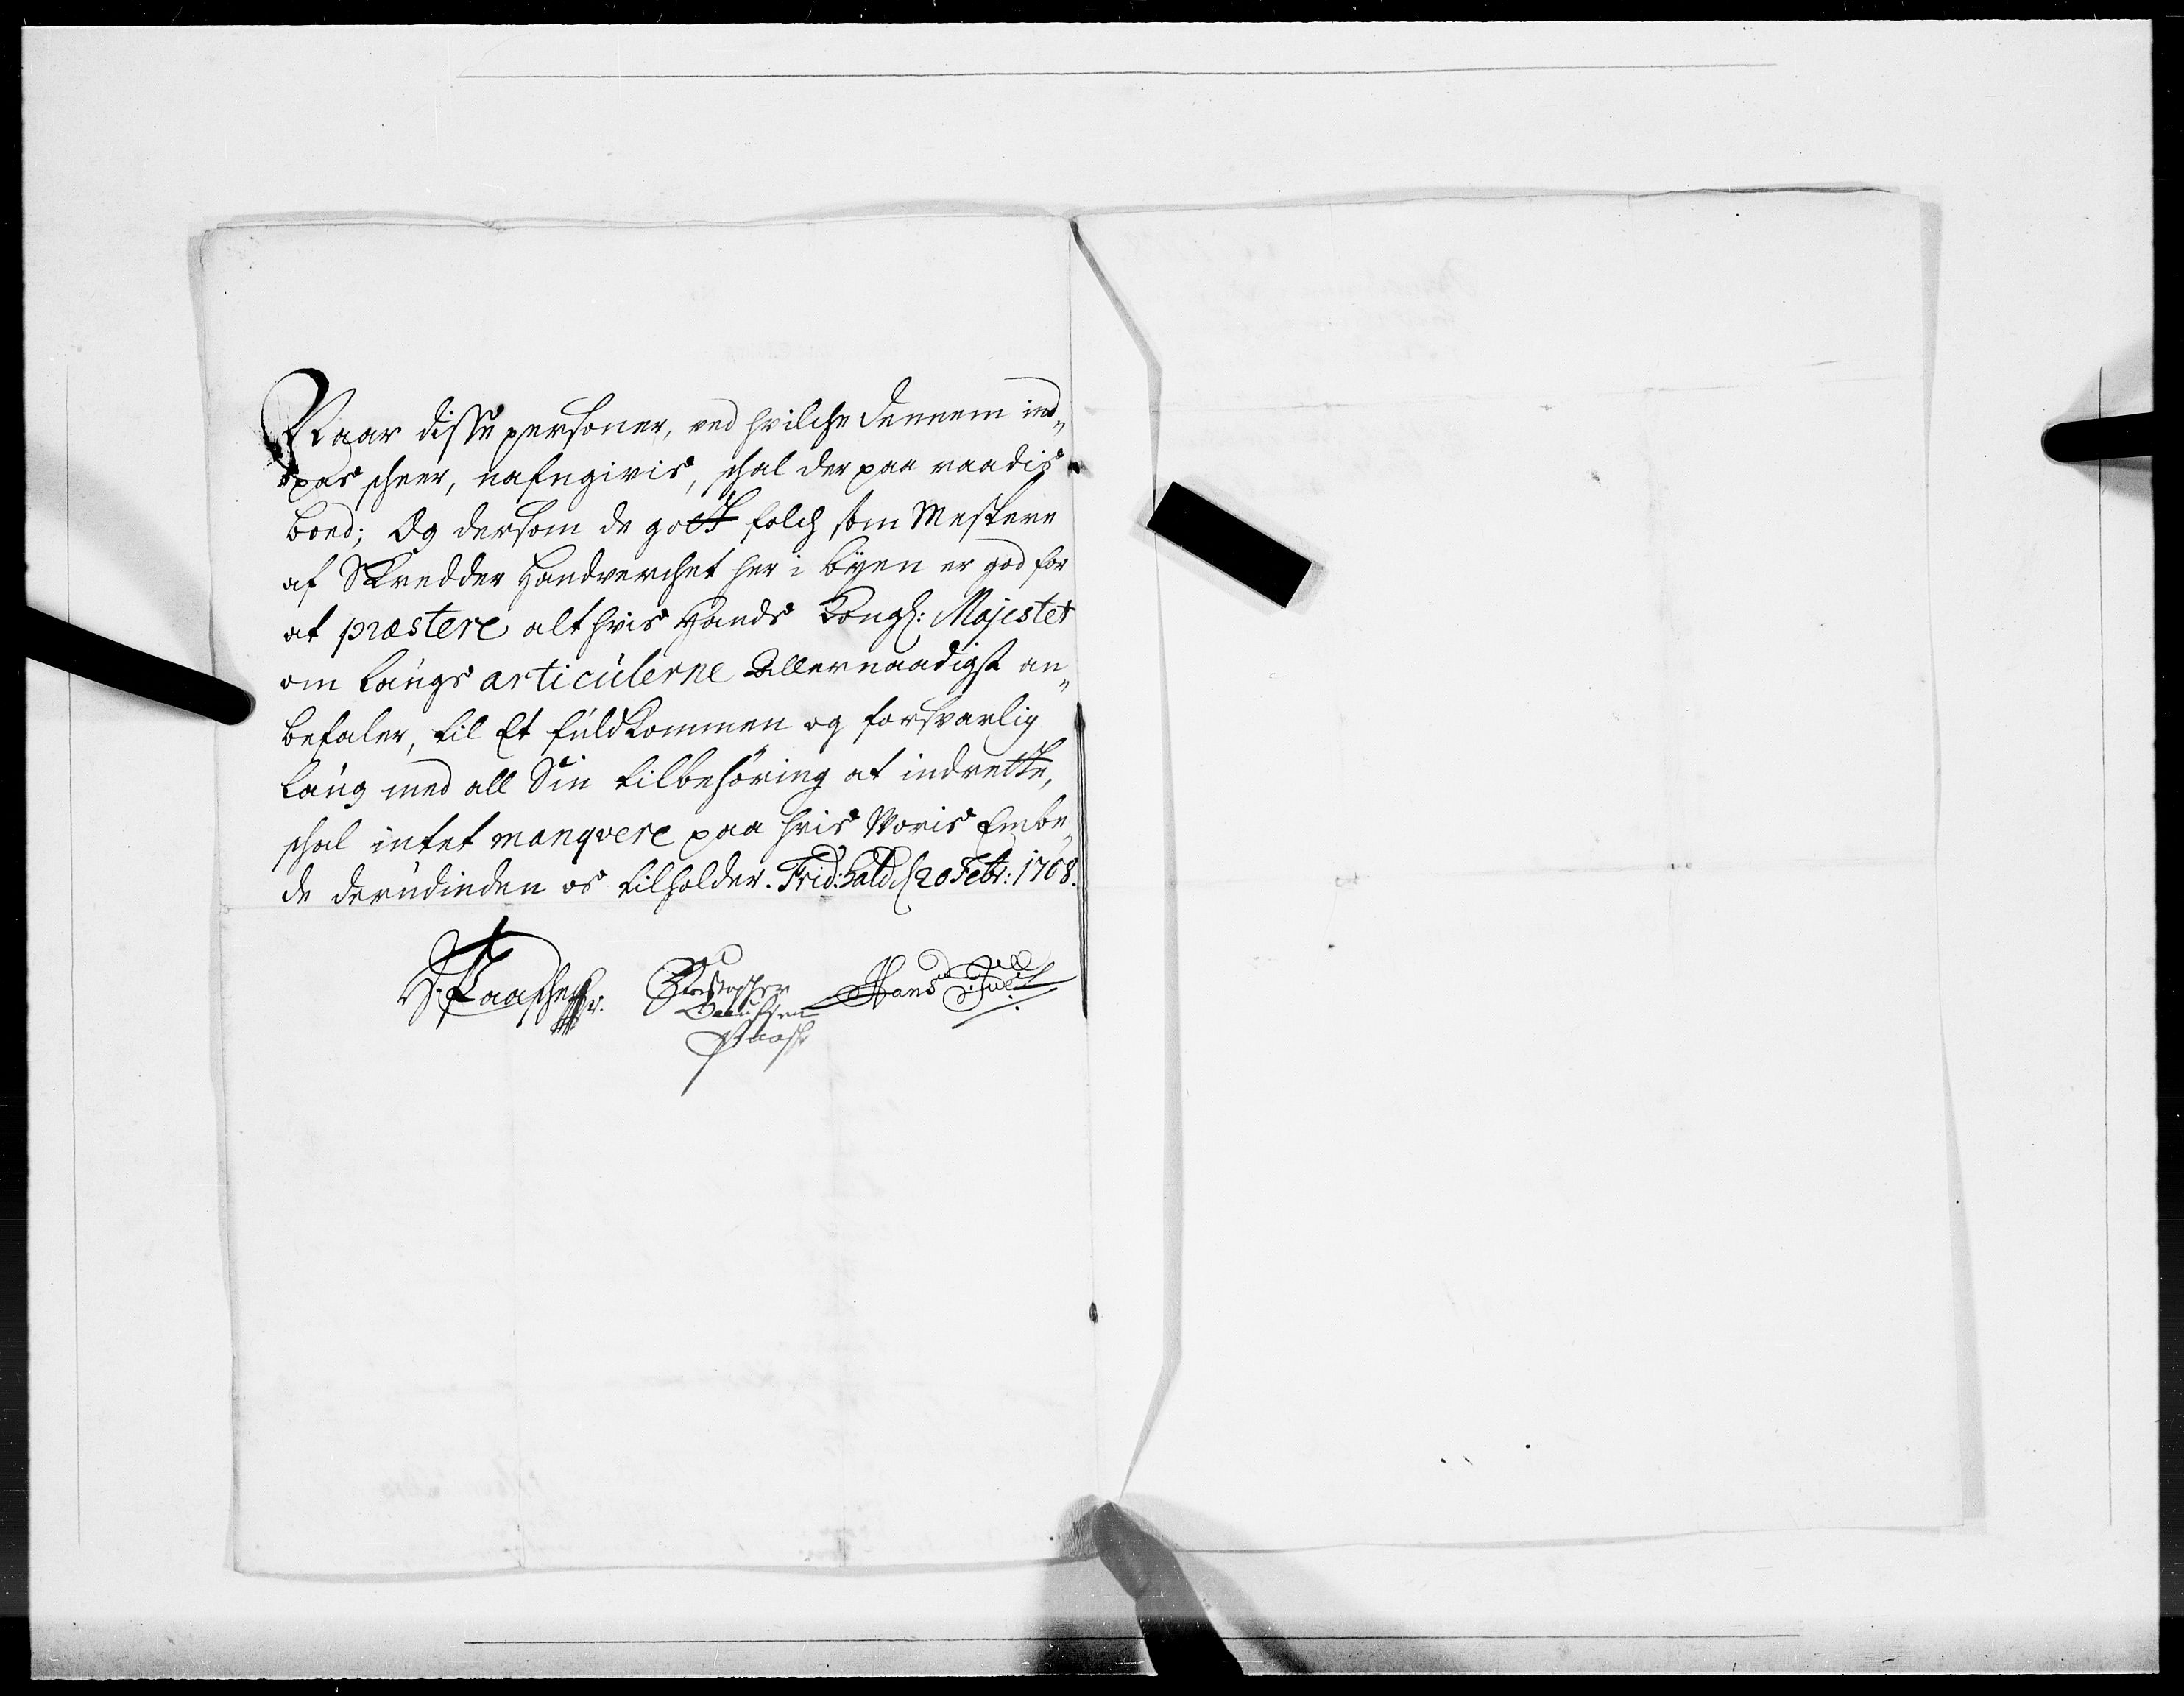 Naar disse personer, ved hvilche dennem ind„
pas scheer, nafngivis, schal der paa raadis
boed; Og dersom de gott folch som Mestere
af Skredder Handverchet her i byen er god for
at præstere alt hvis Hands Kongl: Majestet
om laugs articulerne Allernaadigst an„
befaler, til Et fuldkommen og forsvarlig
laug med all Sin tilbehøring at indrette,
schal intet manqvere paa hvis Voris Embe„
de derudinden os tilholder. Fridr:hald d 20 Febr: 1708.
Paasche
Christopher
Paasche
Hans Juell